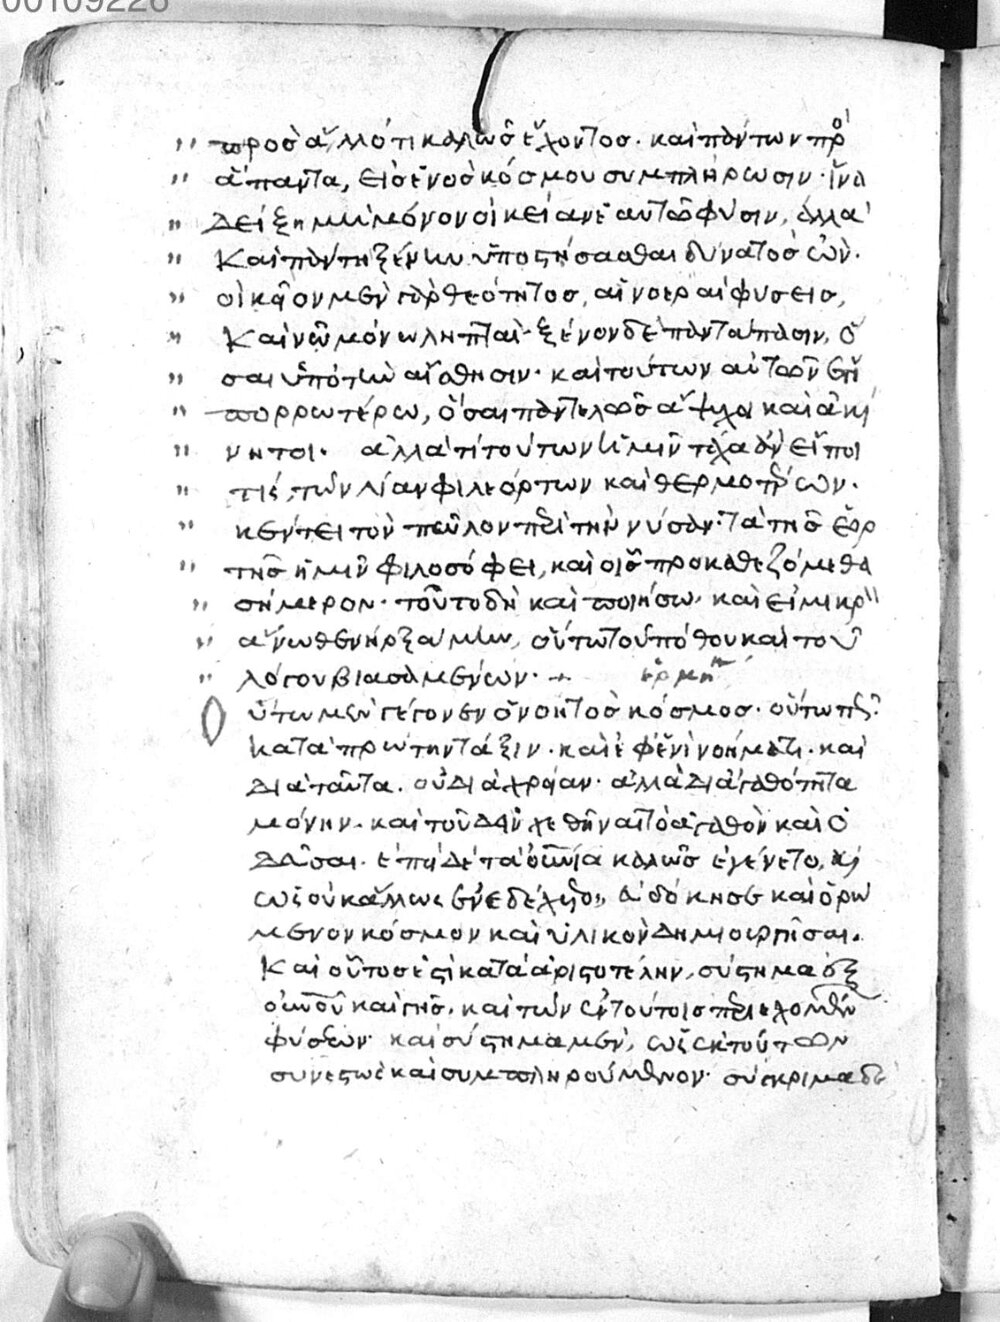 00109226
πρὸς ἄλλο τι καλῶς ἔχοντος· καὶ πάντων πρὸ
ἅπαντα, εἰς ἑνὸς κόσμου συμπλήρωσιν· ἵνα
δείξῃ μὴ μόνον οἰκείαν ἑαυτῶ φύσιν, ἀλλὰ
καὶ πάντη ξένην ὑποστήσασθαι δυνατὸς ὤν·
οἰκεῖον μὲν γὰρ θεότητος, αἱ νοεραὶ φύσεις,
καὶ νῶ μόνω ληπταί· ξένον δὲ παντάπασιν, ὅ
σαι ὑπὸ τὴν αἴσθησιν· καὶ τούτων αὐτῶν ἔτι
πορρωτέρω, ὅσαι παντελῶς ἄψυχοι καὶ ἀκί
νητοι· ἀλλὰ τί τούτων ἡμῖν τάχα ἂν εἴποι
τίς, τῶν λίαν φιλεόρτων καὶ θερμοτέρων·
κέντει τὸν πῶλον περὶ τὴν νύσσαν· τὰ τῆς ἑορ
τῆς ἡμῖν φιλοσόφει, καὶ οἷς προκαθεζόμεθα
σήμερον· τοῦτο δὴ καὶ ποιήσω, καὶ εἰ μικρὸν
ἄνωθεν ἠρξάμην, οὕτω τοῦ πόθου καὶ τοῦ
λόγου βιασαμένων·
ἑρμη
οὕτω μὲν γέγονεν ὁ νοητὸς κόσμος· οὕτω
κατὰ πρώτην τάξιν· καὶ ἐφ' ἑνὶ νοήματι· καὶ
διὰ ταῦτα. οὐ διὰ χρείαν· ἀλλὰ δι' ἀγαθότητα
μόνην· καὶ τοῦ δεῖν χεθῆναι τὸ ἀγαθὸν καὶ ὁ
δεῦσαι· ἐπεὶ δὲ τὰ πρῶτα καλῶς ἐγένετο, καὶ
ὡς οὐκ ἄλλως ἐνεδέχετο, εὐδόκησε καὶ ὁρώ
μενον κόσμον καὶ ὑλικὸν δημιουργῆσαι.
Καὶ οὗτος ἐστὶ κατὰ ἀριστοτέλην, σύστημα ἐξ
οὐρανοῦ καὶ γῆς, καὶ τῶν ἐν τούτοις περιεχομένων
φύσεων· καὶ σύστημα μέν, ὡς ἐκ τούτων
συνεστὼς καὶ συμπληρούμενον· σύγκριμα δὲ